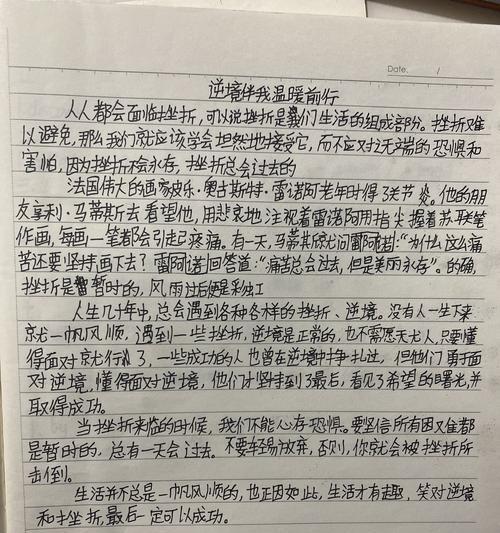 Date. /
逆境伴我温暖前行
人人都会面临挫折，可以说挫折是我们生活的组成部分。挫折难
以避免，那么我们就应该学会坦然地接受它，而不应对无端的恐惧和
害怕，因为挫折不会永存，挫折总会过去的
法国伟大的画家皮乐·奥古斯特·雷诺阿老年时得了关节炎。他的朋
友享利·马蒂斯去看望他，用悲哀地注视着雷诺阿用指尖握着笔
作画，每画一笔都会引起疼痛。有一天，马蒂斯就问雷阿诺：“为什么这么痛
苦还要坚持画下去？雷阿诺回答道：“痛苦总会过去，但是美丽永存”。的确，
挫折是暂时的，风雨过后便是彩虹
人生几十年中，总会遇到各种各样的挫折、逆境。没有人一生下来
就一帆风顺，遇到一些挫折，逆境是正常的，也不需怨天尤人，只要懂
得面对就行了，一些成功的人也曾在逆境中挣扎过，但他们勇于面
对逆境，懂得面对逆境，他们才坚持到了最后，看见了希望的曙光，并
取得成功。
当挫折来临的时候，我们不能心存恐惧。要坚信所有困难都
是暂时的，总有一天会过去。不要轻易放弃，否则，你就会被挫折所
击倒。
生活并不总是一帆风顺的，也正因如此，生活才有趣，笑对逆境
和挫折，最后一定可以成功。